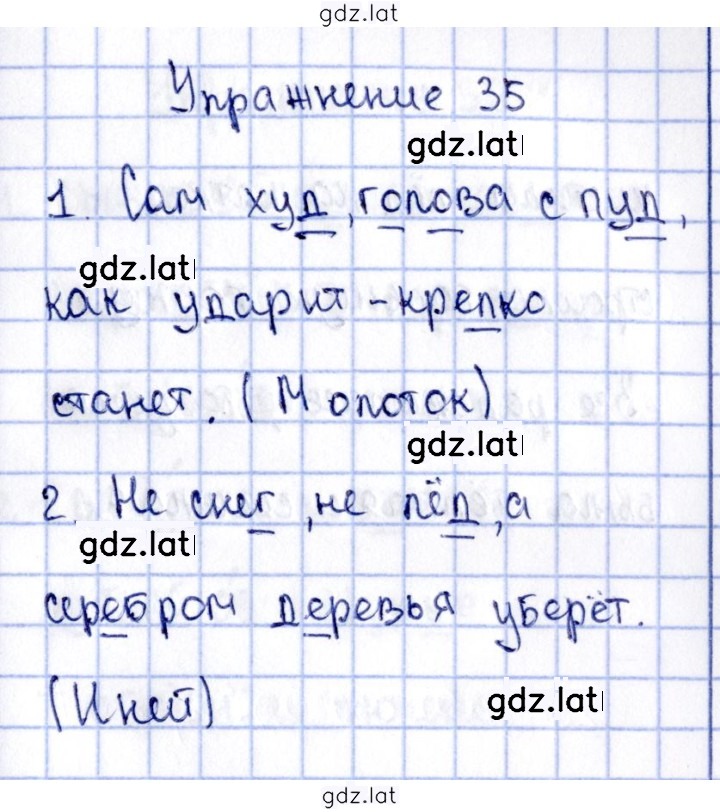 gdz.lat
Упражнение 35
gdz.lat
1. Сам худ, голова с пуд,
gdz.lat
как ударит - крепко
станет. (Молоток)
gdz.lat
2. Не снег, не лёд, а
gdz.lat
серебром деревья уберёт.
(Иней)
gdz.lat
gdz.lat